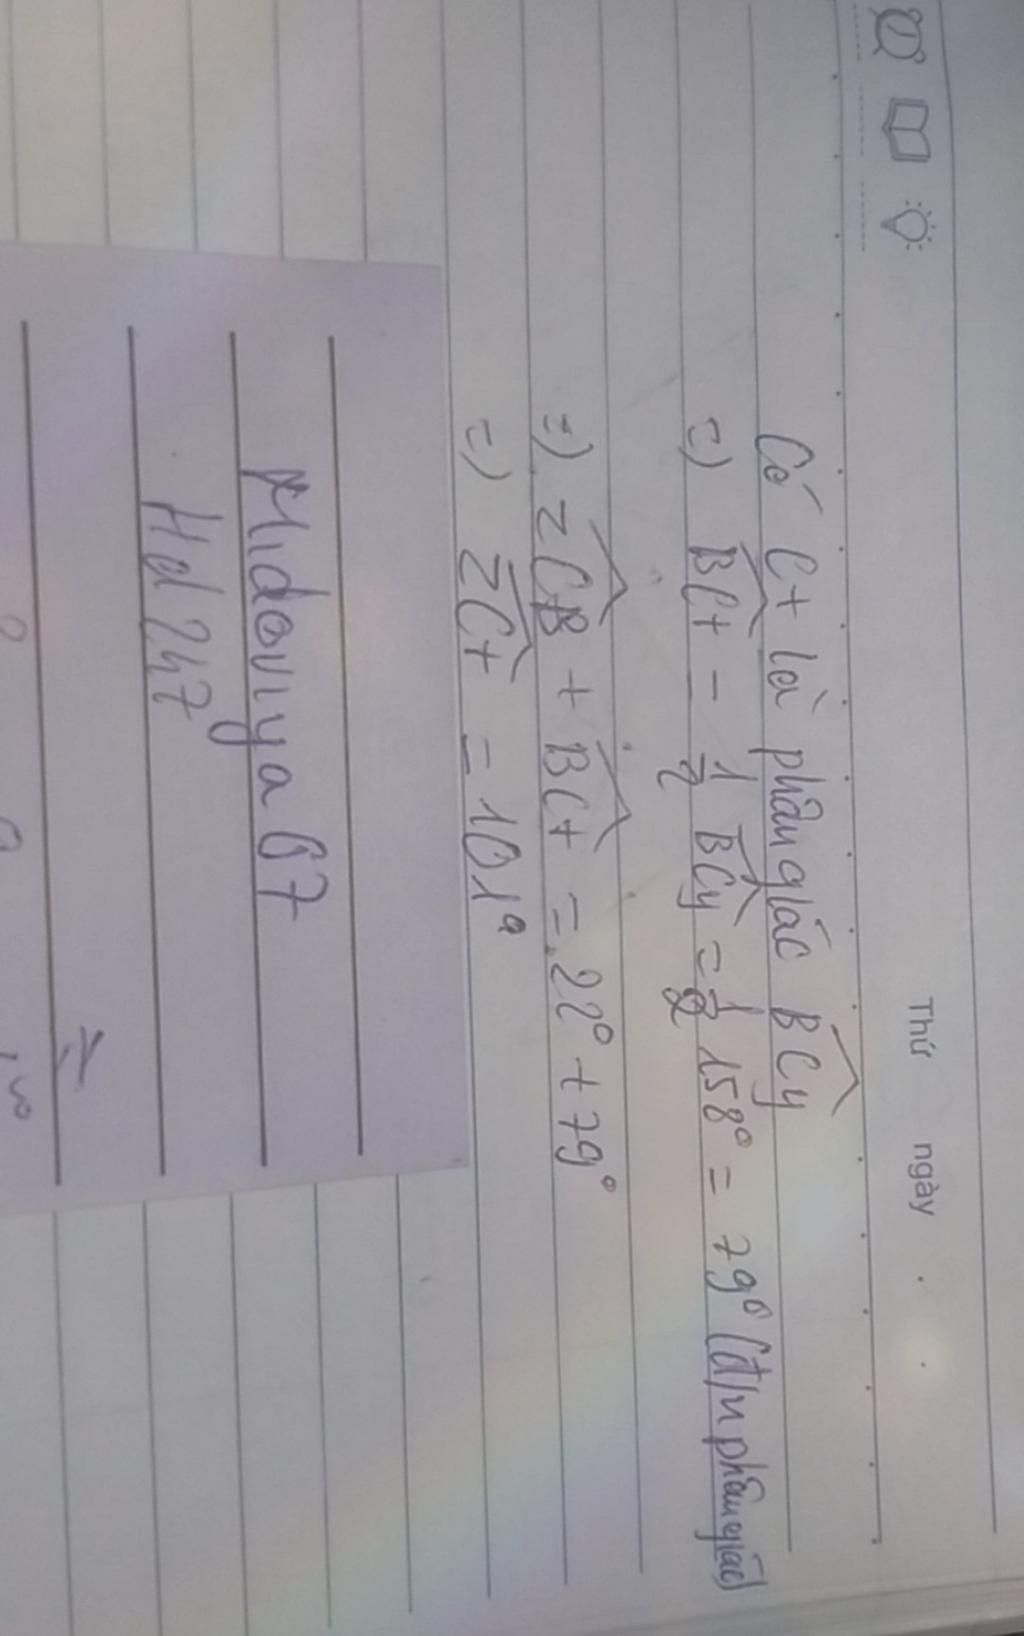 Thứ ngày
Có Ct là phân giác BCy
=) BCt = 1/2 BCy = 1/2 158° = 79° (đ/n phân giác)
=) zCB + BCt = 22° + 79°
=) zCt = 101°
Midoviya67
Hd247